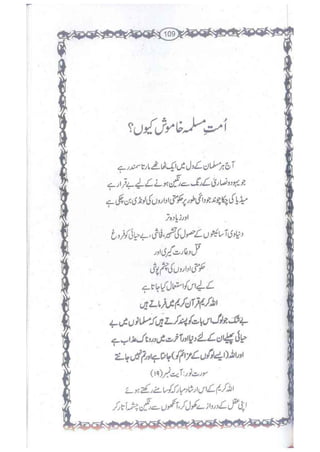 109
اُمتِ مسلمہ خاموش کیوں؟
آج ہر مسلمان کے دل میں ایک ٹھاٹھے مارتا سمندر ہے
جو یہود و نصاریٰ کے رنگ سے رنگین ہونے کے لیے بے قرار ہے
میڈیا کی چکا چوند جو دائمی طور پر حکومتی اداروں کی لونڈی بن چکی ہے
اور زیادہ تر
دنیاوی آسائیشوں کے حصول کی تشہیر، فحاشی، بے حیائی کو فروغ
قتل و غارت گیری اور
حکومتی اداروں کی چشم پوشی
کے لیے اس کو استعمال کیا جاتا ہے
اللہ کریم قرآن کریم میں فرماتے ہیں
بے شک جو لوگ اس بات کو پسند کرتے ہیں کہ مسلمانوں میں بے
حیائی پھیلے ان کے لئے دنیا اور آخرت میں دردناک عذاب ہے
اور اللہ (ایسے لوگوں کے عزائم کو) جانتا ہے اور تم نہیں جانتے
سورت نور: آیت نمبر (۱۹)
اللہ کریم کے اس ارشاد مبارک کو سامنے رکھتے ہوئے
اپنی عقل کے دروازے کھول کر، آنکھوں سے رنگین چشمہ اُتار کر